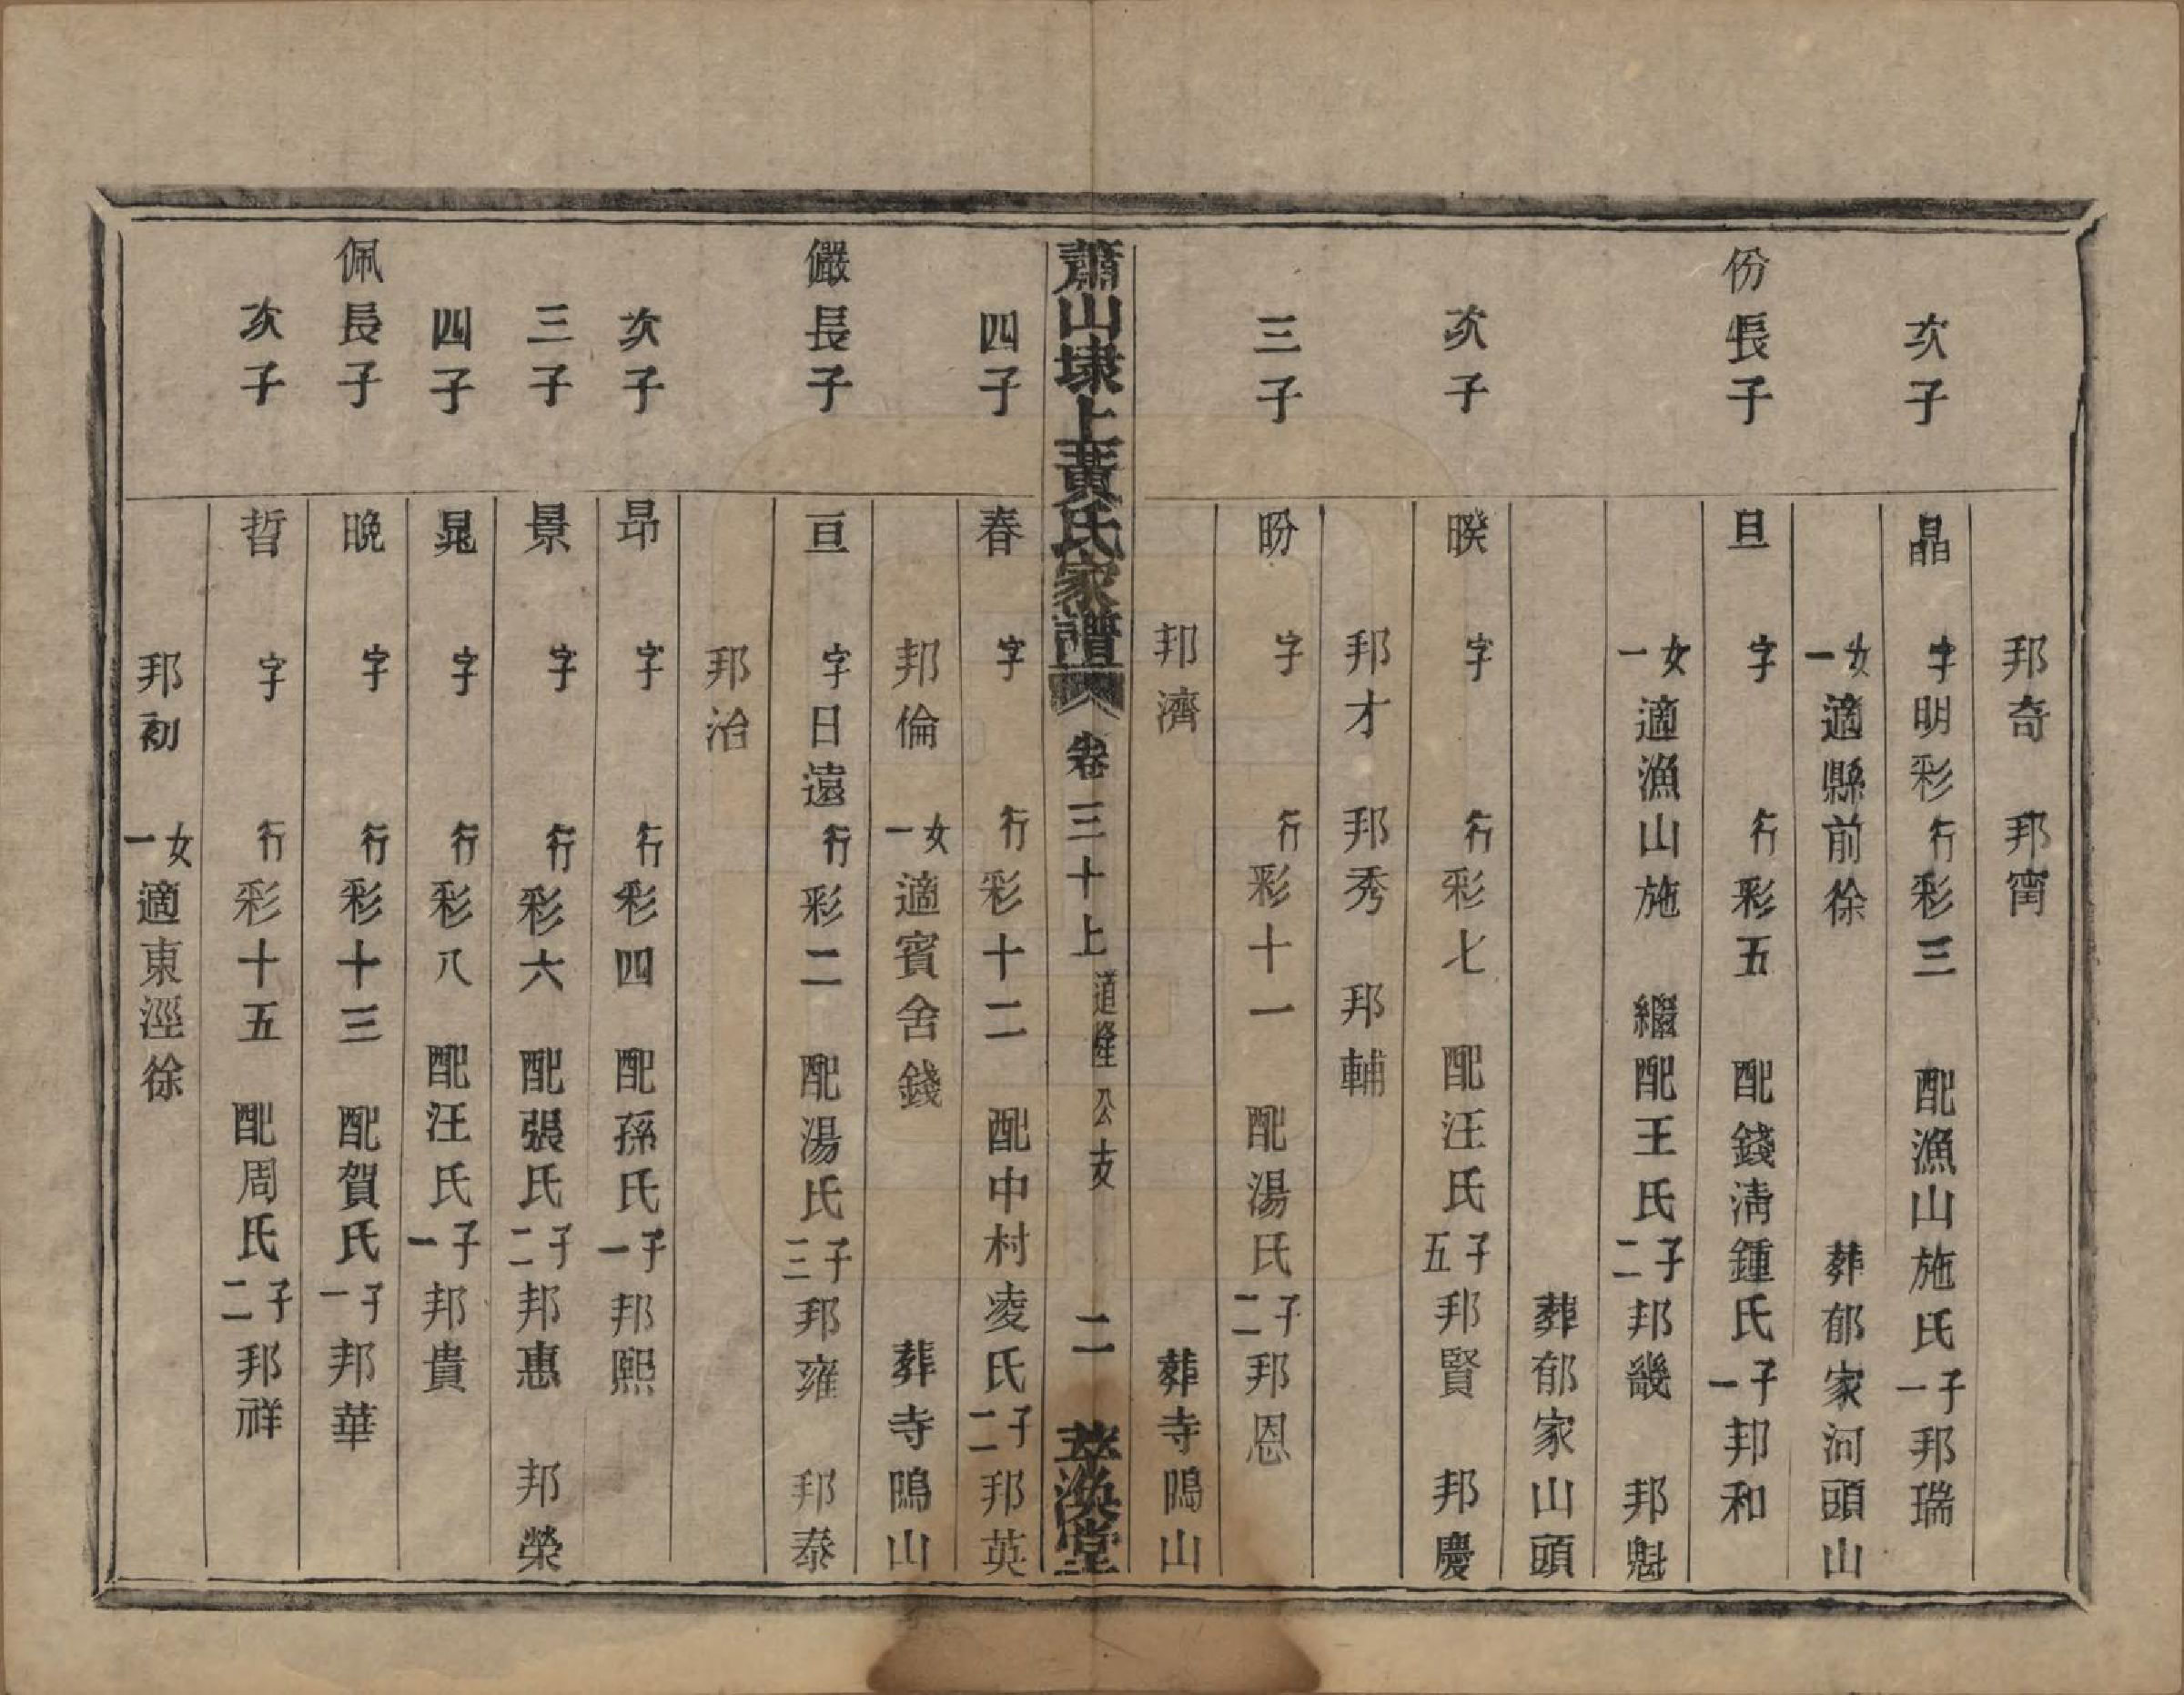 邦奇 邦甯
次子 晶 字明彩 行彩三 配漁山施氏 子一 邦瑞
女一 適縣前徐 葬郁家河頭山
份長子 旦 字 行彩五 配錢淸鍾氏 子一 邦和
女一 適漁山施 繼配王氏 子二 邦畿 邦魁
葬郁家山頭
次子 暌 字 行彩七 配汪氏 子五 邦賢 邦慶
邦才 邦秀 邦輔
三子 盼 字 行彩十一 配湯氏 子二 邦恩
邦濟 葬寺隝山
蕭山埭上黃氏家譜 卷三十上 道隆公支 二 萃渙堂
四子 春 字 行彩十二 配中村凌氏 子二 邦英
邦倫 女一 適賓舍錢 葬寺隝山
儼長子 亘 字日遠 行彩二 配湯氏 子三 邦雍 邦泰
邦治
次子 昂 字 行彩四 配孫氏 子一 邦熙
三子 景 字 行彩六 配張氏 子二 邦惠 邦榮
四子 晁 字 行彩八 配汪氏 子一 邦貴
佩長子 晚 字 行彩十三 配賀氏 子一 邦華
次子 晢 字 行彩十五 配周氏 子二 邦祥
邦初 女一 適東涇徐